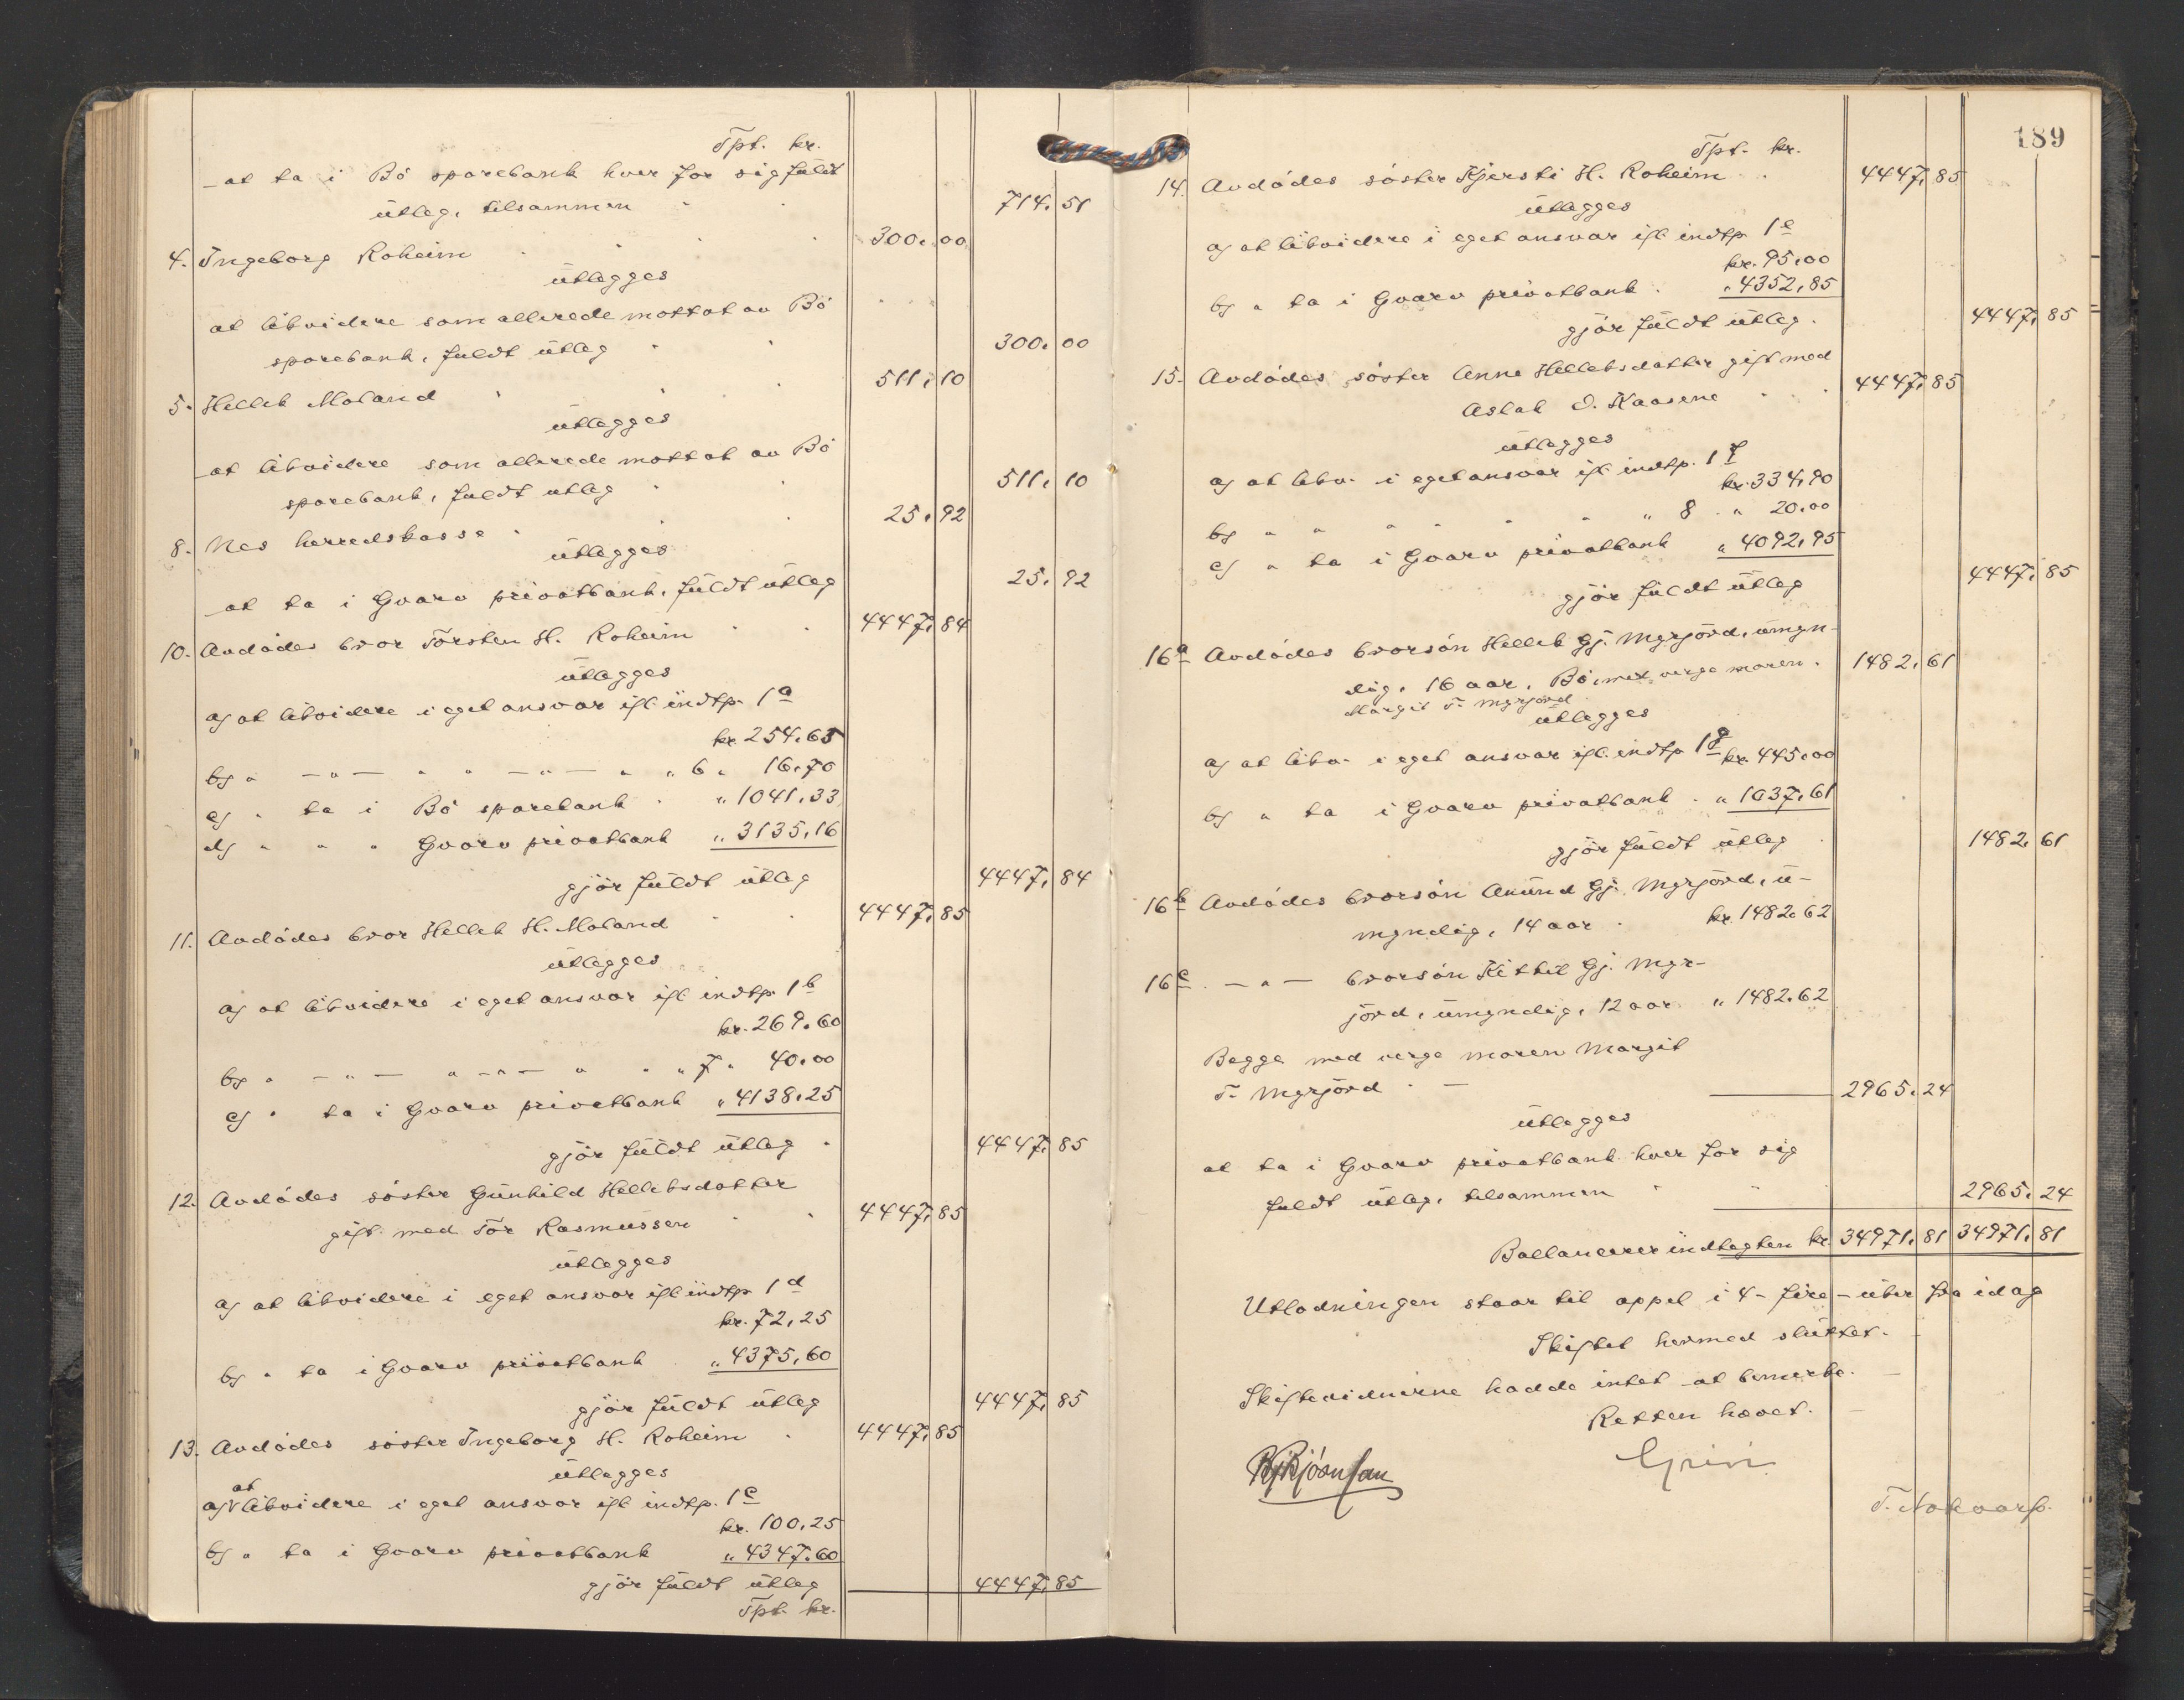 Tpt. kr.
at ta i Bö sparebank hver for sig fuldt
utleg, tilsammen 714,51
4. Ingeborg Roheim 300,00
utlegges
at likvidere som allerede mottat av Bö
sparebank, fuldt utleg 300,00
5. Hellek Moland 511,10
utlegges
at likvidere som allerede mottat av Bö
sparebank, fuldt utleg 511,10
8. Nes herredskasse 25,92
utlegges
at ta i Gvarv privatbank, fuldt utleg 25,92
10. Avdödes bror Torsten H. Roheim 4447,84
utlegges
a) at likvidere i eget ansvar ifl. indtp. 1a
kr. 254,65
b) " —"— " " —"— " " 6 " 16,70
c) " ta i Bö sparebank " 1041,33
d) " " " Gvarv privatbank " 3135,16
gjör fuldt utleg 4447,84
11. Avdödes bror Hellek H. Moland 4447,85
utlegges
a) at likvidere i eget ansvar ifl. indtp. 1b
kr. 269,60
b) " —"— " —"— " " " 7 " 40,00
c) " ta i Gvarv privatbank " 4138,25
gjör fuldt utleg 4447,85
12. Avdödes söster Gunhild Helleksdatter
gift med Tor Rasmussen 4447,85
utlegges
a) at likvidere i eget ansvar ifl. indtp. 1d
kr. 72,25
b) " ta i Gvarv privatbank " 4375,60
gjör fuldt utleg 4447,85
13. Avdödes söster Ingeborg H. Roheim 4447,85
utlegges
a) at likvidere i eget ansvar ifl. indtp. 1c
kr. 100,25
b) " ta i Gvarv privatbank " 4347,60
gjör fuldt utleg 4447,85
Tpt. kr.
189
Tpt. kr.
14. Avdödes söster Kjersti H. Roheim 4447,85
utlegges
a) at likvidere i eget ansvar ifl. indtp. 1e
kr. 95,00
b) " ta i Gvarv privatbank " 4352,85
gjör fuldt utleg. 4447,85
15. Avdödes söster Anne Helleksdatter gift med
Aslak O. Kaasene 4447,85
utlegges
a) at likv. i eget ansvar ifl. indtp. 1f
kr. 334,90
b) " " " " " " " 8 " 20,00
c) " ta i Gvarv privatbank " 4092,95
gjör fuldt utleg 4447,85
16a Avdödes brorsön Hellek Gj. Myrjord, umyn-
dig, 16 aar, Bö, med verge moren 1482,61
Margit T. Myrjord
utlegges
a) at likv. i eget ansvar ifl. indtp. 1g kr. 445,00
b) " ta i Gvarv privatbank " 1037,61
gjör fuldt utleg 1482,61
16b Avdödes brorsön Anund Gj. Myrjord, u-
myndig, 14 aar kr. 1482,62
16c —"— brorsön Kittil Gj. Myr-
jord, umyndig, 12 aar " 1482,62
Begge med verge moren Margit
T. Myrjord 2965,24
utlegges
at ta i Gvarv privatbank hver for sig
fuldt utleg, tilsammen 2965,24
Ballancerer indtægten kr. 34971,81 34971,81
Utlodningen staar til appel i 4 - fire - uker fra idag
Skiftet hermed sluttet.
Skiftevidnerne hadde intet at bemerke.
Retten hævet.